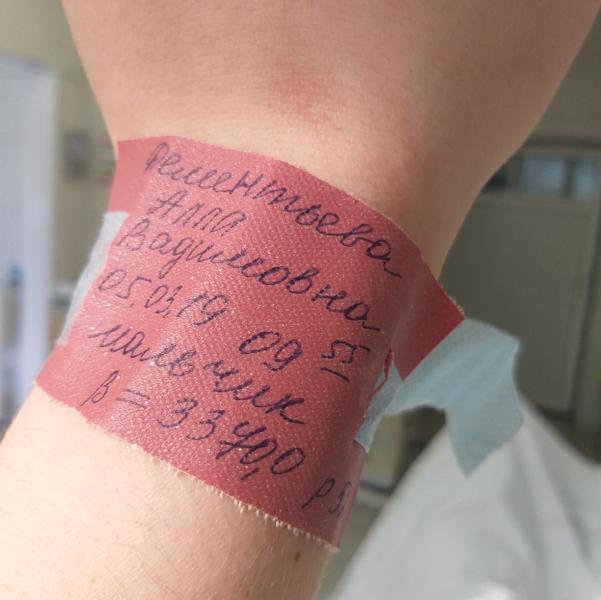 Дементьева
Алла
Вадимовна
05.03.19 09 55
мальчик
В = 3340,0
р 5